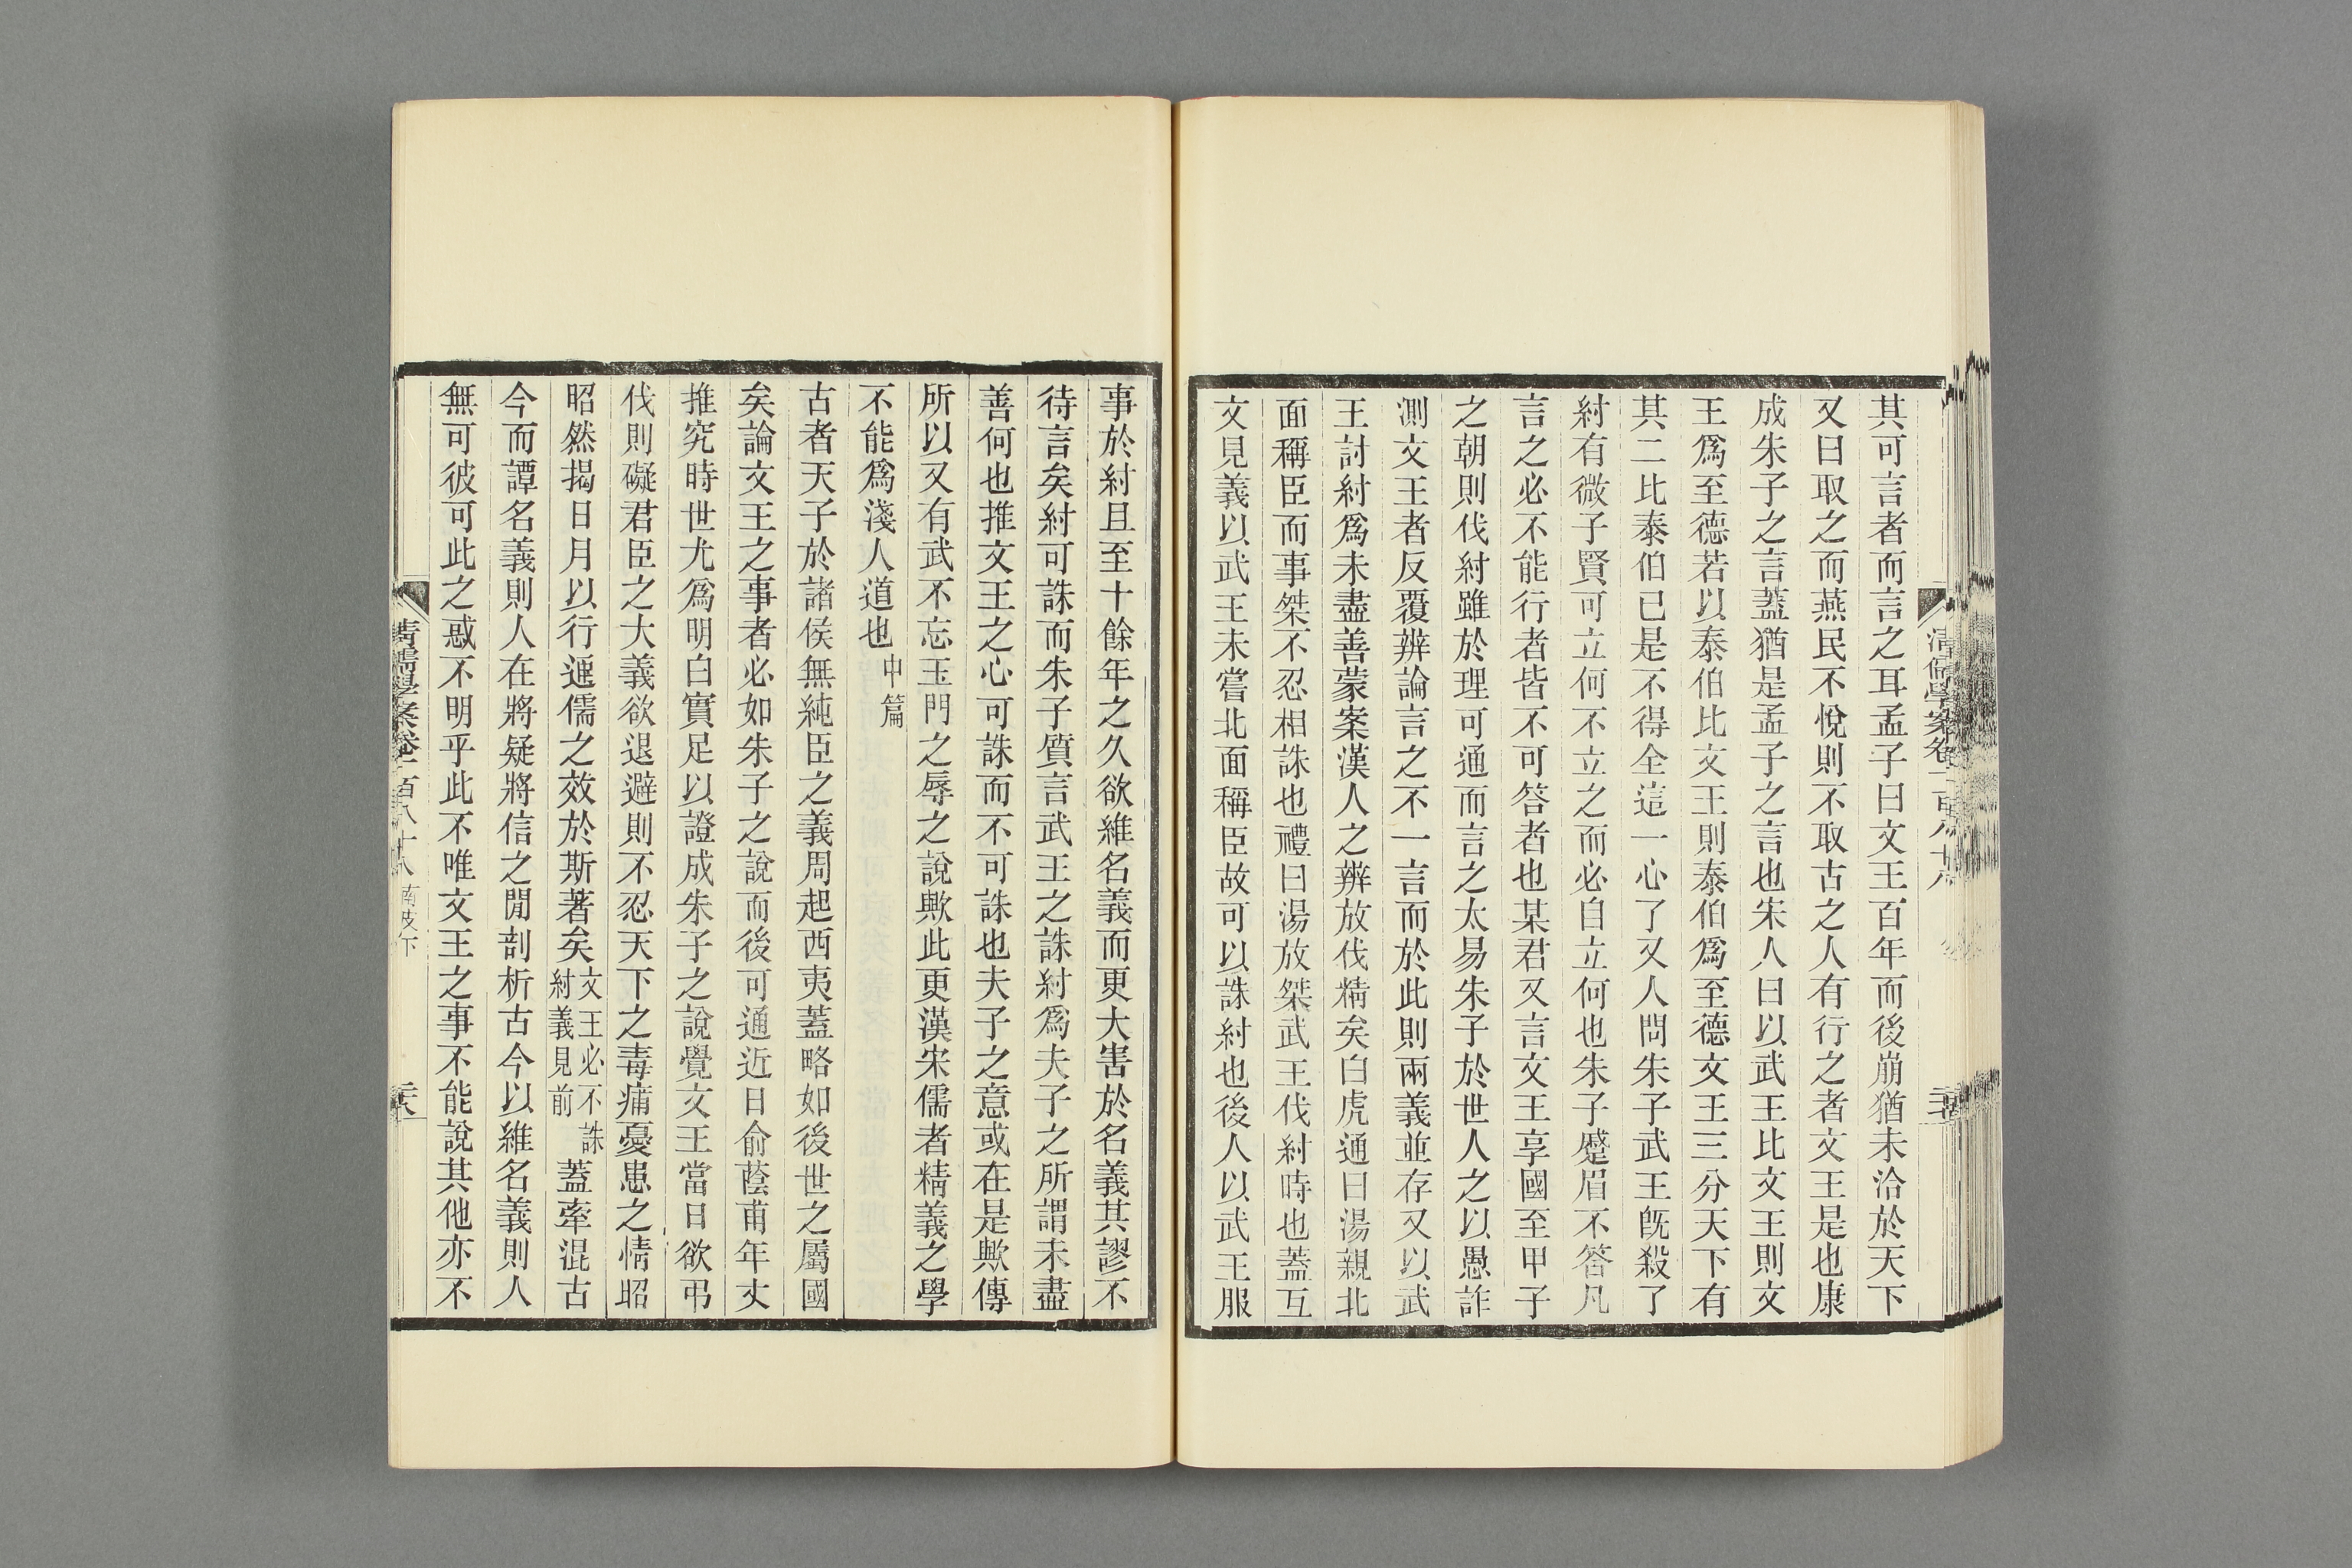 其可言者而言之耳孟子曰文王百年而後崩猶未洽於天下
又曰取之而燕民不悅則不取古之人有行之者文王是也康
成朱子之言蓋猶是孟子之言也宋人曰以武王比文王則文
王爲至德若以泰伯比文王則泰伯爲至德文王三分天下有
其二比泰伯已是不得全這一心了又人問朱子武王既殺了
紂有微子賢可立何不立之而必自立何也朱子蹙眉不答凡
言之必不能行者皆不可答者也某君又言文王享國至甲子
之朝則伐紂雖於理可通而言之太易朱子於世人之以愚詐
測文王者反覆辨論言之不一言而於此則兩義並存又以武
王討紂爲未盡善蒙案漢人之辨放伐精矣白虎通曰湯親北
面稱臣而事桀不忍相誅也禮曰湯放桀武王伐紂時也蓋互
文見義以武王未嘗北面稱臣故可以誅紂也後人以武王服
事於紂且至十餘年之久欲維名義而更大害於名義其謬不
待言矣紂可誅而朱子質言武王之誅紂爲夫子之所謂未盡
善何也推文王之心可誅而不可誅也夫子之意或在是歟傳
所以又有武不忘玉門之辱之說歟此更漢宋儒者精義之學
不能爲淺人道也中篇
古者天子於諸侯無純臣之義周起西夷蓋略如後世之屬國
矣論文王之事者必如朱子之說而後可通近日俞蔭甫年丈
推究時世尤爲明白實足以證成朱子之說覺文王當日欲弔
伐則礙君臣之大義欲退避則不忍天下之毒痡憂患之情昭
昭然揭日月以行通儒之效於斯著矣文王必不誅紂義見前蓋牽混古
今而譚名義則人在將疑將信之閒剖析古今以維名義則人
無可彼可此之惑不明乎此不唯文王之事不能說其他亦不
清儒學案卷一百八十八 南皮下